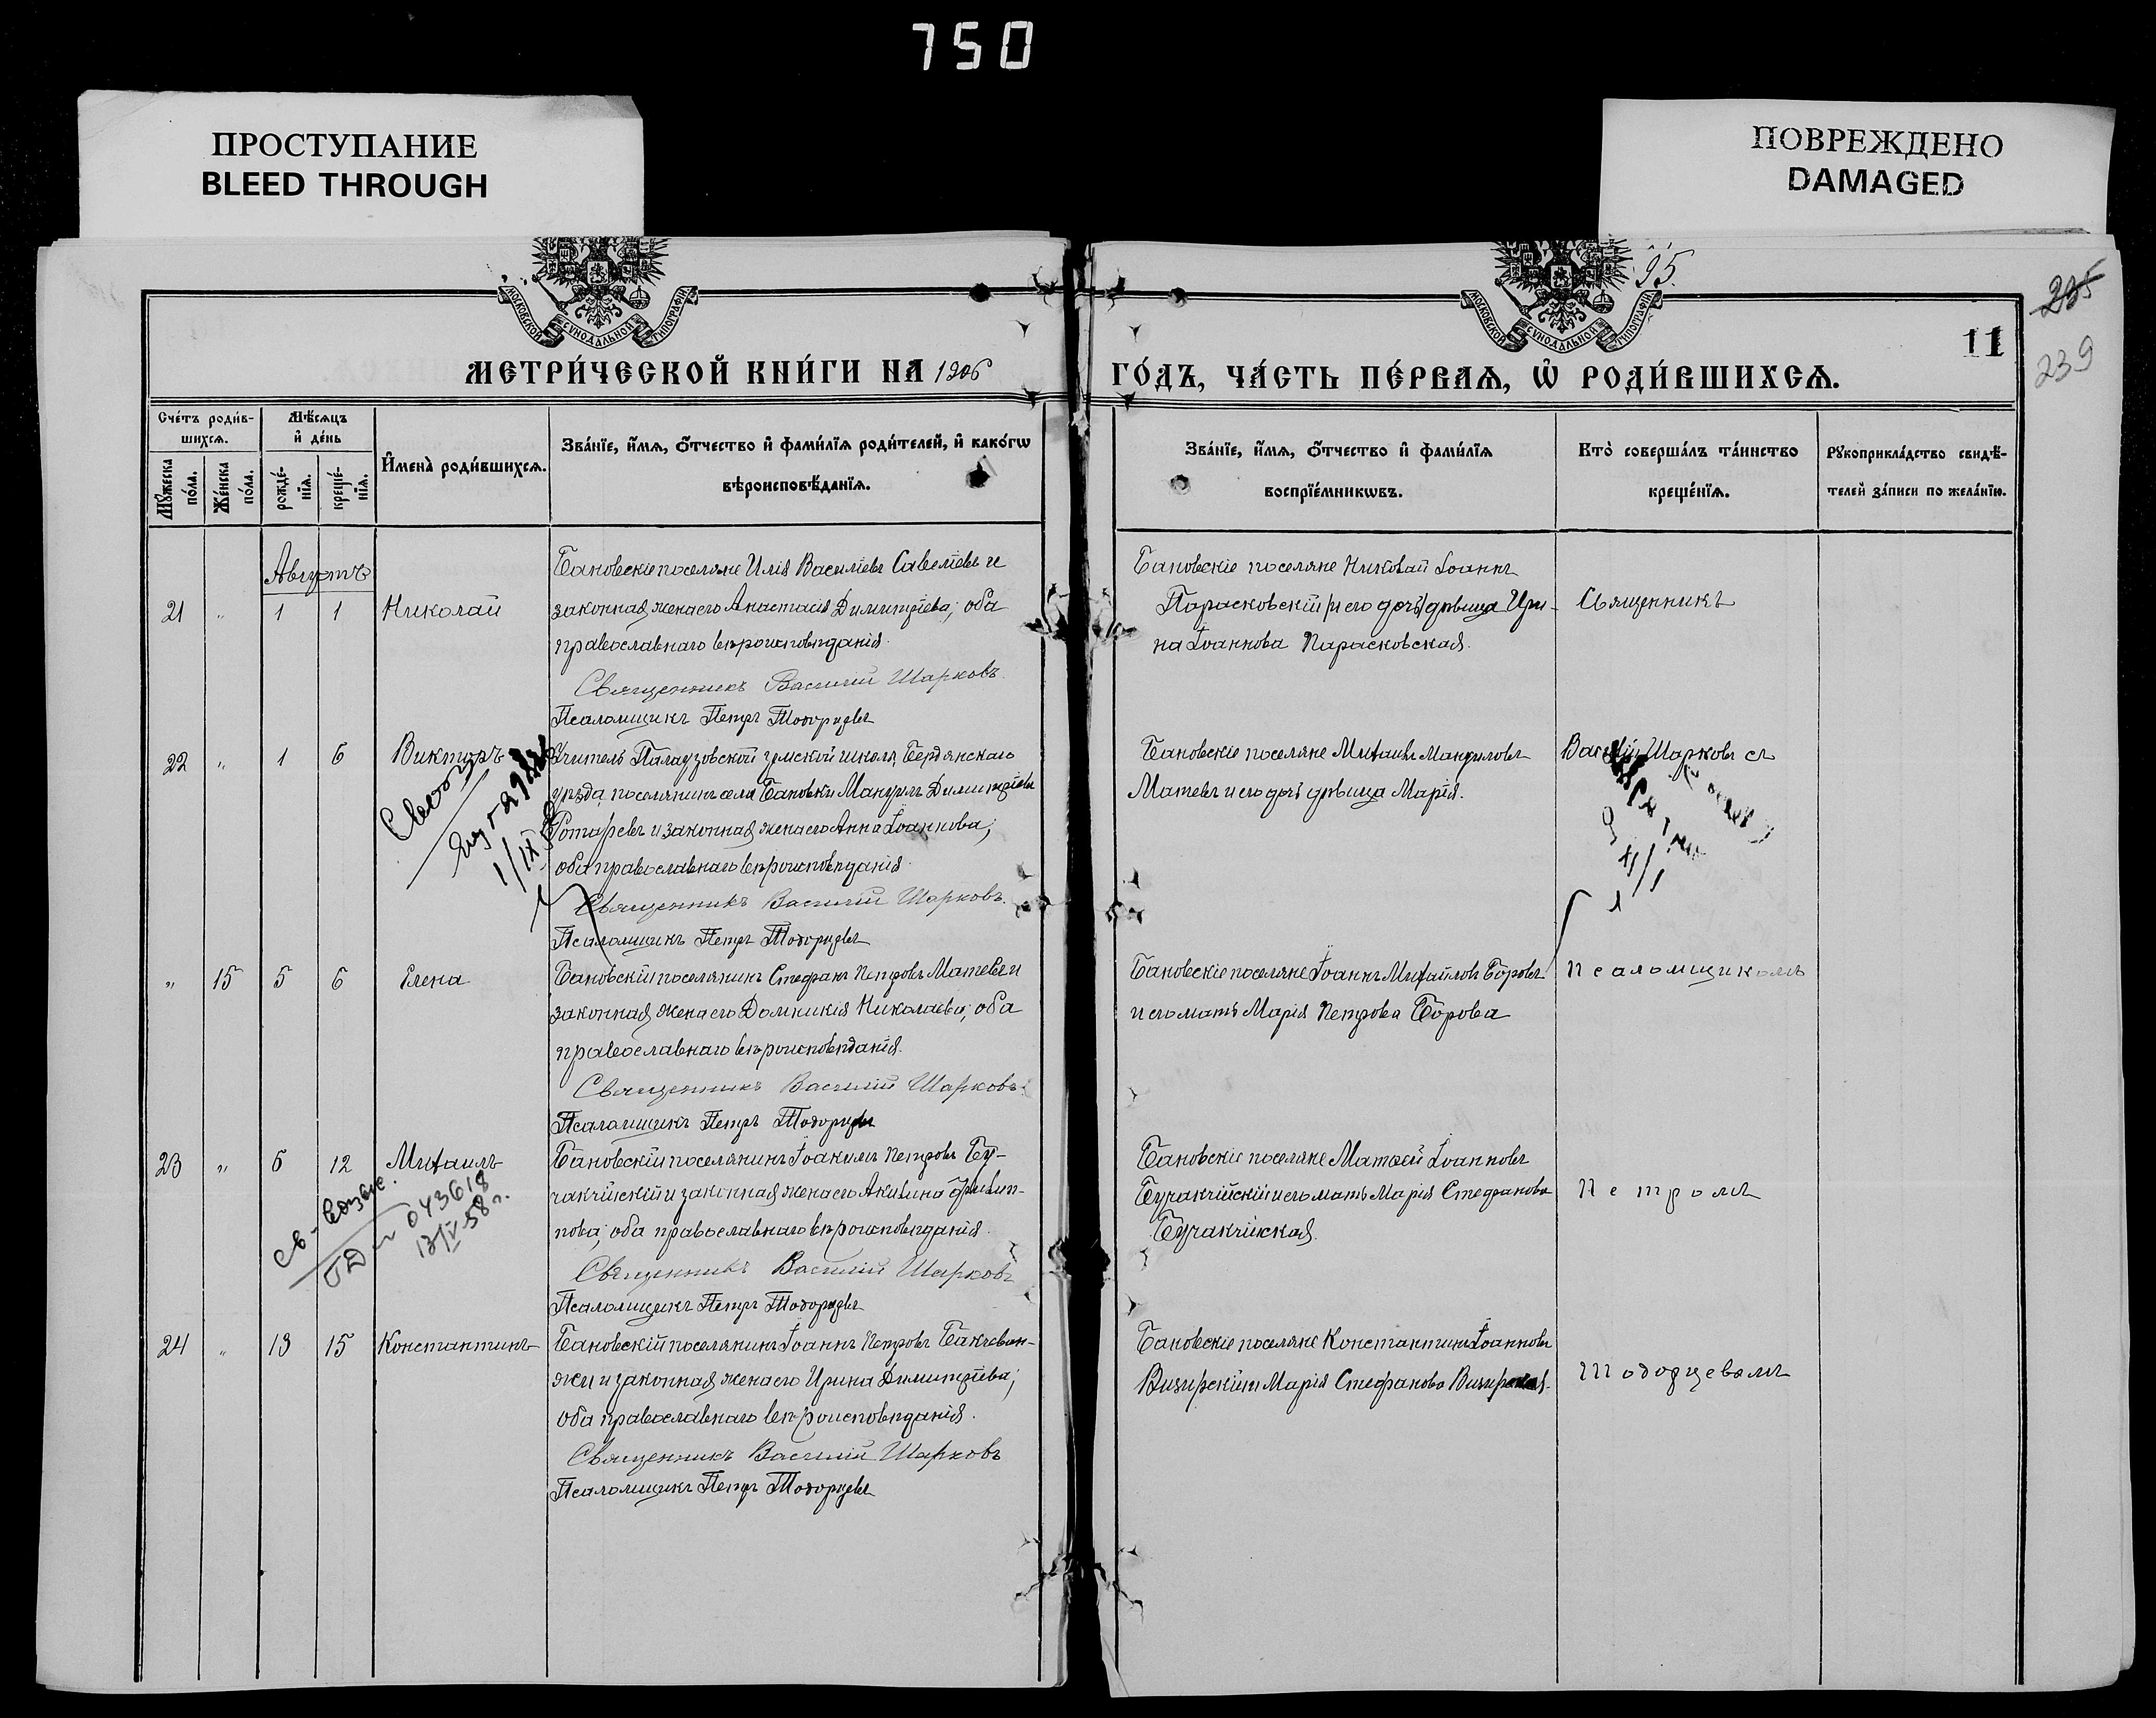 750
ПРОСТУПАНИЕ
BLEED THROUGH
ПОВРЕЖДЕНО
DAMAGED
МОСКОВСКОЙ СѴНОДАЛЬНОЙ ТИПОГРАФІИ
МОСКОВСКОЙ СѴНОДАЛЬНОЙ ТИПОГРАФІИ
95.
235
239
11
МЕТРИ́ЧЕСКОЙ КНИ́ГИ НА 1906
ГО́ДЪ, ЧА́СТЬ ПЕ́РВАѦ, Ѡ҆ РОДИ́ВШИХСѦ.
Сче́тъ роди́в-
шихсѧ.
Мꙋ́жеска по́ла.
Же́нска по́ла.
Мѣ́сѧцъ
и҆ де́нь
рожде́-нїѧ.
креще́-нїѧ.
И҆мена̀ роди́вшихсѧ.
Зва́нїе, и҆́мѧ, ѻ҆́тчество и҆ фами́лїѧ роди́телей, и҆ како́гѡ
вѣроисповѣ́данїѧ.
Зва́нїе, и҆́мѧ, ѻ҆́тчество и҆ фами́лїѧ
воспрїе́мникѡвъ.
Кто̀ соверша́лъ та́инство
креще́нїѧ.
Рꙋкоприкла́дство свидѣ́-
телей за́писи по жела́нїю.
Августъ
21 " 1 1 Николай
Бановскіе поселяне Илія Василіевъ Савеліевъ и
законная жена его Анастасія Димитріева; оба
православнаго вѣроисповѣданія.
Священникъ Василій Шарковъ.
Псаломщикъ Петръ Тодорцевъ
Бановскіе поселяне Николай Іоаннъ
Парасковскій и его дочь дѣвица Ири-
на Іоаннова Парасковская.
Священникъ
22 " 1 6 Викторъ
Учитель Палаузовской земской школы Бердянскаго
уѣзда, поселянинъ села Бановки Мануилъ Димитріевъ
Ротаревъ и законная жена его Анна Іоаннова;
оба православнаго вѣроисповѣданія.
Священникъ Василій Шарковъ.
Псаломщикъ Петръ Тодорцевъ
Бановскіе поселяне Михаилъ Мануиловъ
Матевъ и его дочь дѣвица Марія.
Василій Шарковъ съ
1/IX
" 15 5 6 Елена
Бановскій поселянинъ Стефанъ Петровъ Матевъ и
законная жена его Домникія Николаева; оба
православнаго вѣроисповѣданія.
Священникъ Василій Шарковъ.
Псаломщикъ Петръ Тодорцевъ
Бановскіе поселяне Іоаннъ Михайловъ Боровъ
и его мать Марія Петрова Борова
псаломщикомъ
23 " 6 12 Михаилъ
043618
Бановскій поселянинъ Іоакимъ Петровъ Бу-
чакчійскій и законная жена его Акилина Филип-
пова; оба православнаго вѣроисповѣданія.
Священникъ Василій Шарковъ
Псаломщикъ Петръ Тодорцевъ
Бановскіе поселяне Матѳей Іоанновъ
Бучакчійскій и его мать Марія Стефанова
Бучакчійская.
Петромъ
24 " 13 15 Константинъ
Бановскій поселянинъ Іоаннъ Петровъ Бакчеван-
жи и законная жена его Ирина Димитріева;
оба православнаго вѣроисповѣданія.
Священникъ Василій Шарковъ
Псаломщикъ Петръ Тодорцевъ
Бановскіе поселяне Константинъ Іоанновъ
Визирскій и Марія Стефанова Визирская.
Тодорцевымъ